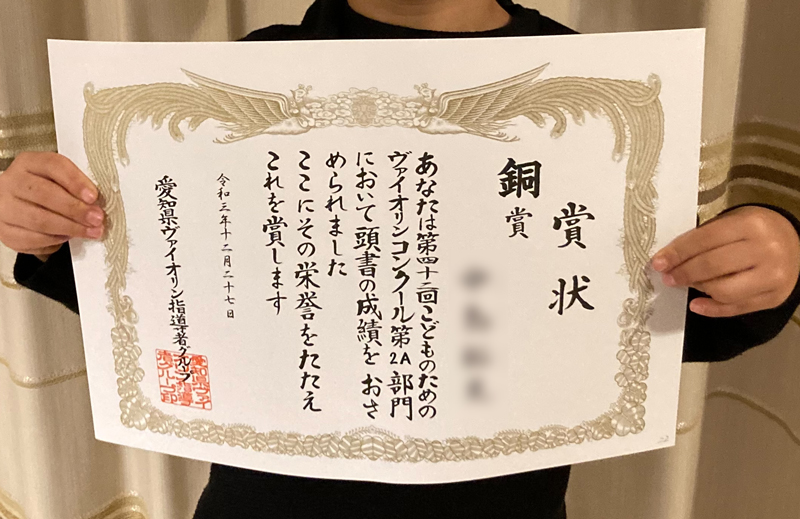 賞状
銅賞
あなたは第四十二回こどものための
ヴァイオリンコンクール第2A部門
において頭書の成績を おさ
められました
ここにその栄誉をたたえ
これを賞します
令和三年十二月二十七日
愛知県ヴァイオリン指導者グループ